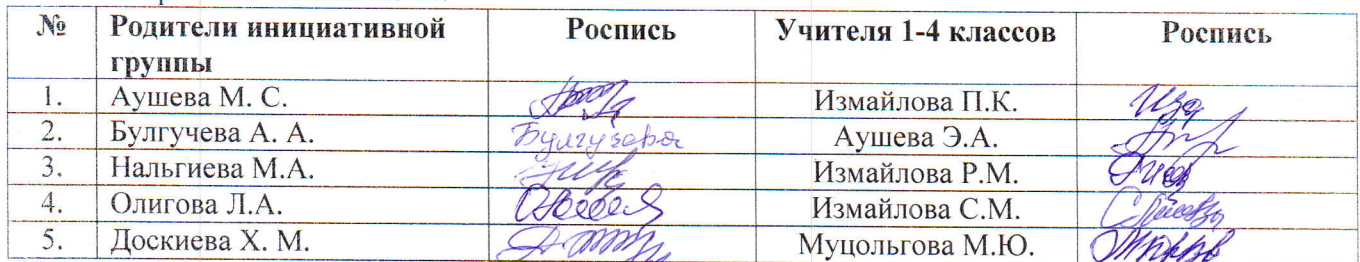 № Родители инициативной Роспись Учителя 1-4 классов Роспись
группы
1. Аушева М. С. Измайлова П.К.
2. Булгучева А. А. Булгучева Аушева Э.А.
3. Нальгиева М.А. Измайлова Р.М.
4. Олигова Л.А. Измайлова С.М.
5. Доскиева Х. М. Муцольгова М.Ю.